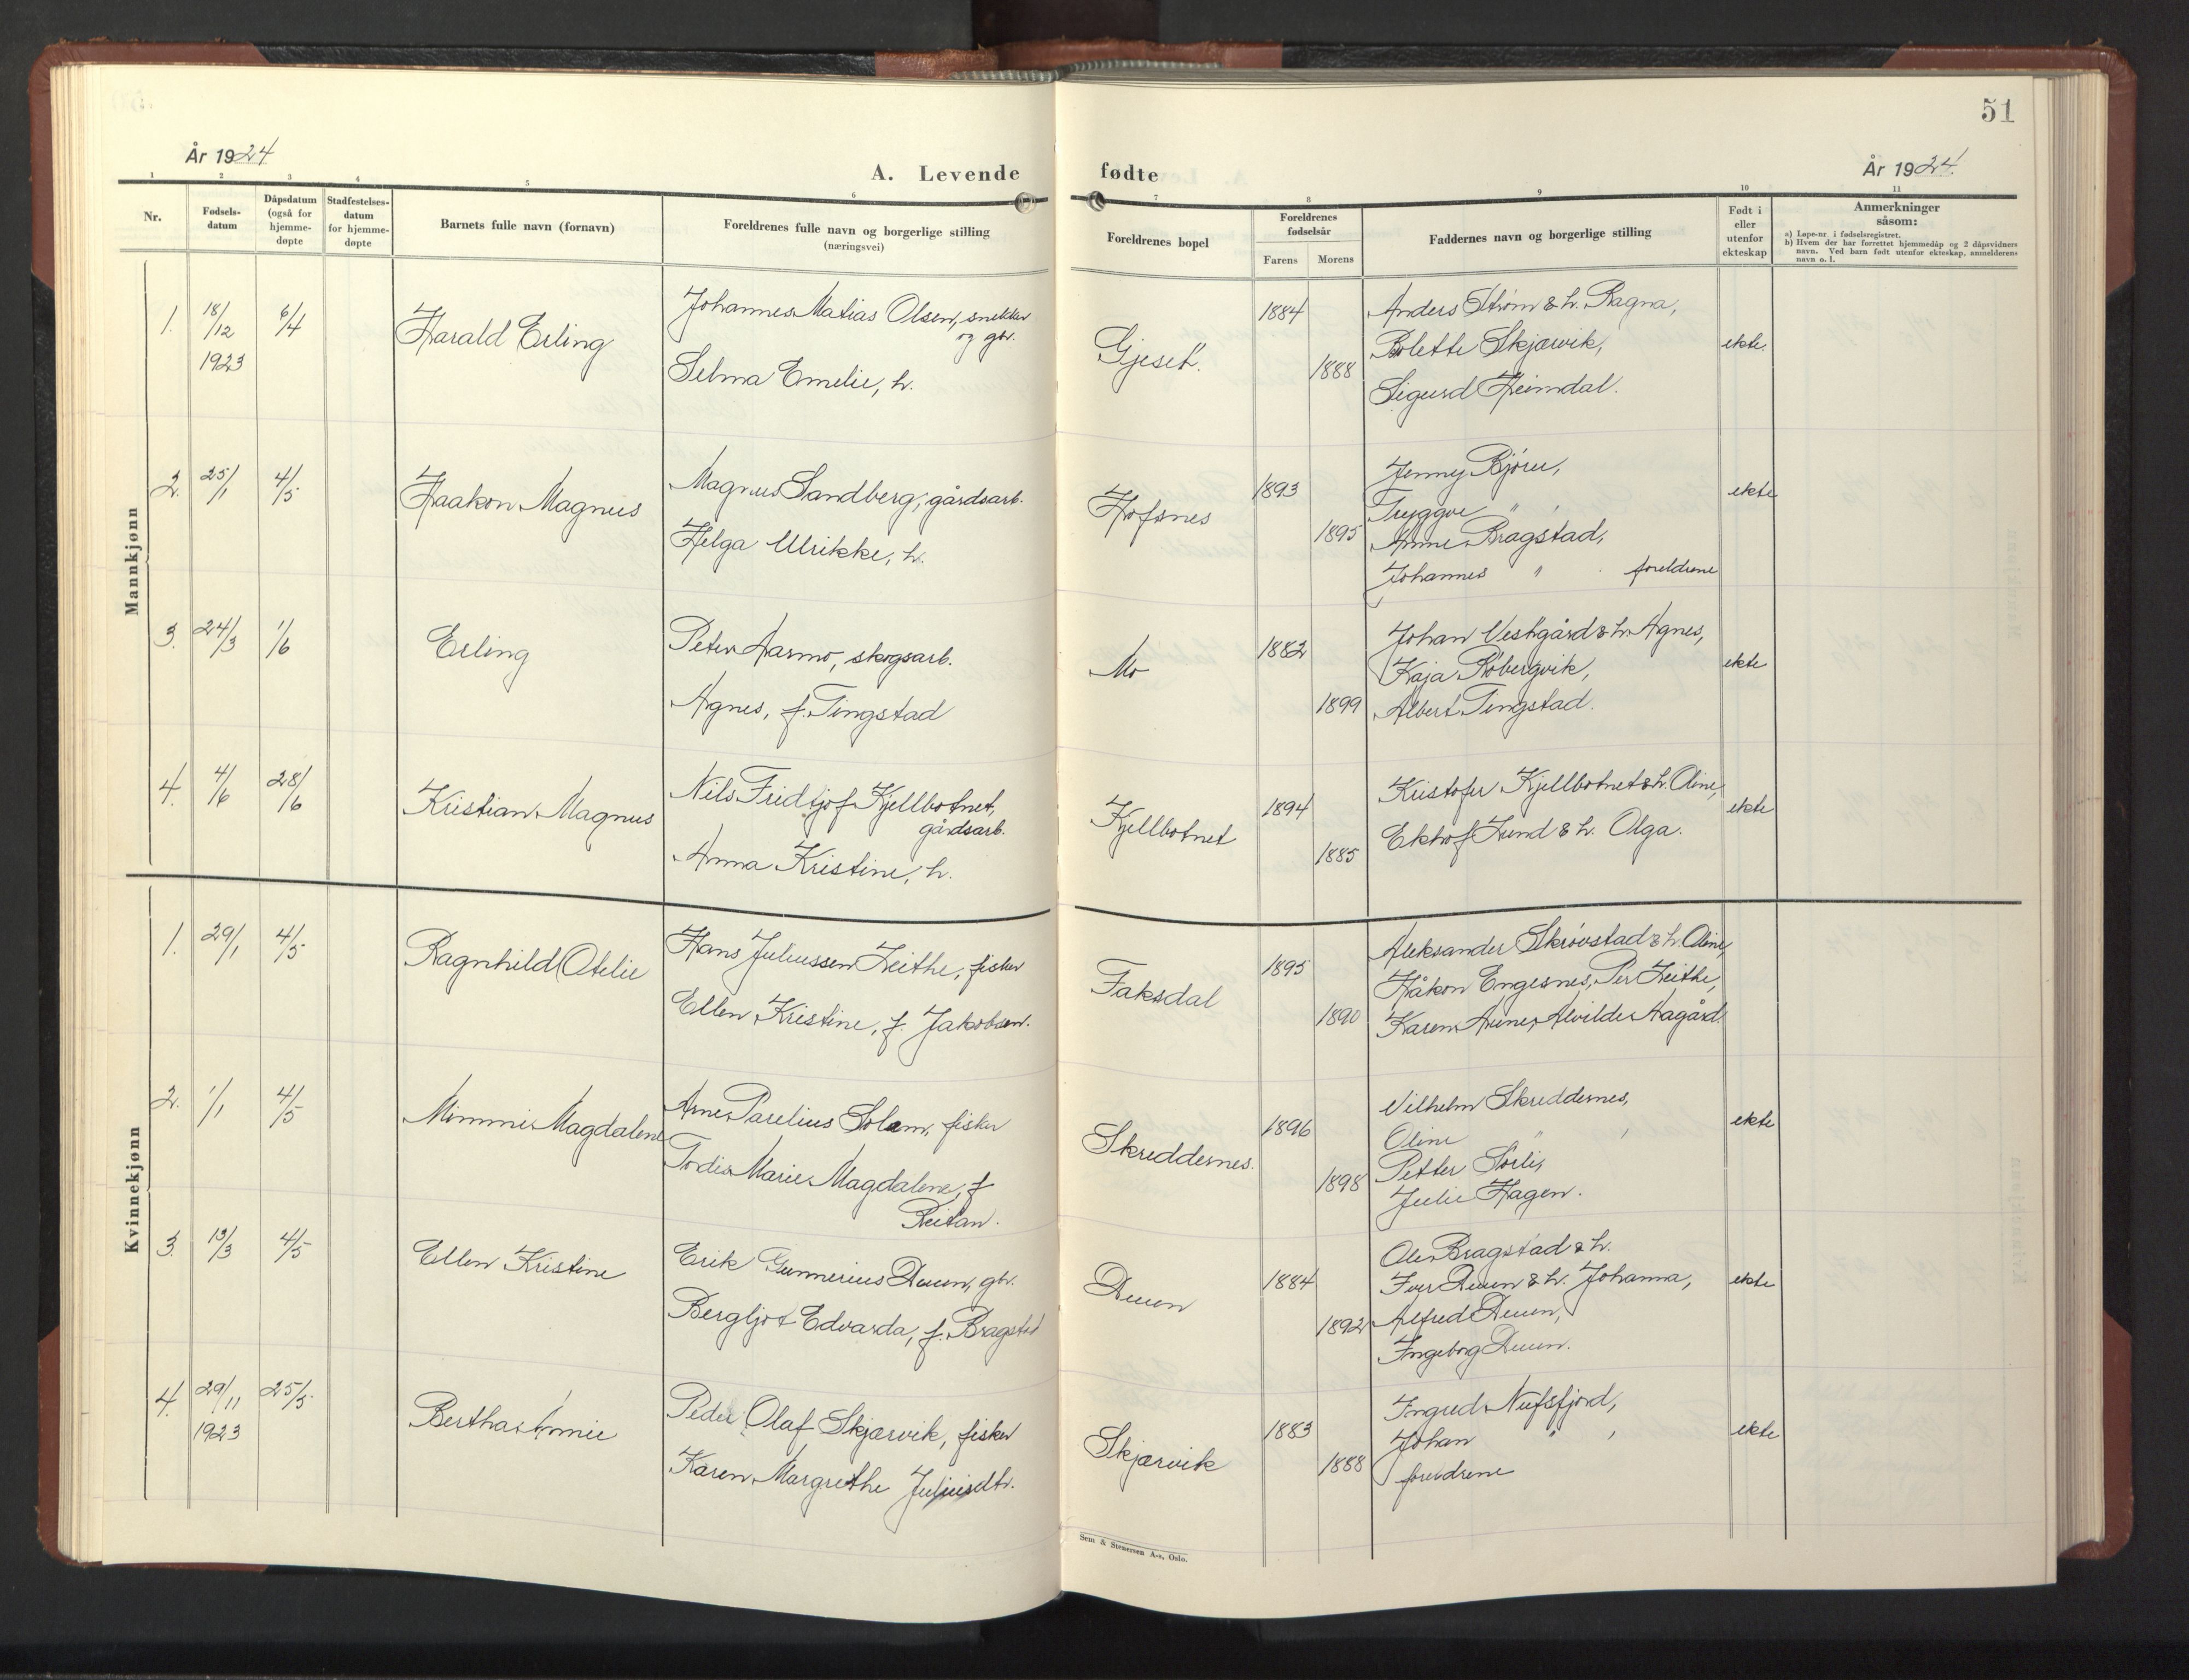 51
År 1924
A. Levende fødte
År 1924.
1 2 3 4 5 6 7 8 9 10 11
Nr.
Fødsels-
datum
Dåpsdatum
(også for
hjemme-
døpte
Stadfestelses-
datum
for hjemme-
døpte
Barnets fulle navn (fornavn)
Foreldrenes fulle navn og borgerlige stilling
(næringsvei)
Foreldrenes bopel
Foreldrenes
fødselsår
Farens Morens
Faddernes navn og borgerlige stilling
Født i
eller
utenfor
ekteskap
Anmerkninger
såsom:
a) Løpe-nr i fødselsregistret.
b) Hvem der har forrettet hjemmedåp og 2 dåpsvidners
navn. Ved barn født utenfor ekteskap, anmelderens
navn o. l.
Mannkjønn
1. 18/12 1923 6/4
Harald Erling
Johannes Matias Olsen, snekker
og gbr.
Selma Emelie, h.
Gjeset.
1884
1888
Anders Strøm & h. Ragna,
Bolette Skjærvik,
Sigurd Heimdal.
ekte.
2. 25/1 4/5
Haakon Magnus
Magnus Sandberg, gårdsarb.
Helga Ulrikke, h.
Hofsnes
1893
1895
Jenny Bjøru,
Tryggve " ,
Anne Bragstad,
Johannes " foreldrene
ekte
3. 24/3 1/6
Erling
Peter Aarmo, skogsarb.
Agnes, f. Tingstad
Mo
1882
1899
Johan Vestgård & h. Agnes,
Kaja Robergvik,
Albert Tingstad.
ekte
4. 4/6 28/6
Kristian Magnus
Nils Fridtjof Kjellbotnet,
gårdsarb.
Anna Kristine, h.
Kjellbotnet
1894
1885
Kristofer Kjellbotnet & h. Oline,
Ekhof Lund & h. Olga.
ekte
Kvinnekjønn
1. 29/1 4/5
Ragnhild Otelie
Hans Juliussen Leithe, fisker
Ellen Kristine, f. Jakobsen.
Faksdal
1895
1890
Aleksander Skrøvstad & h. Oline,
Håkon Engesnes, Per Leithe,
Karen Aune, Alvilde Aagård.
2. 1/1 4/5
Mimmi Magdalene
Arne Parelius Solem, fisker
Tordis Marie Magdalene, f
Reitan.
Skreddernes.
1896
1898
Vilhelm Skreddernes,
Oline " ,
Petter Sørli,
Julie Hagen.
ekte
3. 13/3 4/5
Ellen Kristine
Erik Gunnerius Duun, gbr.
Bergljot Edvarda, f. Bragstad
Duun
1884
1892
Ole Bragstad & h.
Iver Duun & h. Johanna,
Alfred Duun,
Ingeborg Duun.
ekte
4. 29/11 1923 25/5.
Bertha Annie
Peder Olaf Skjærvik, fisker
Karen Margrethe Juliusdtr.
Skjærvik
1883
1888
Ingrid Nufsfjord,
Johan " ,
foreldrene
ekte
Sem & Stenersen A-s, Oslo.